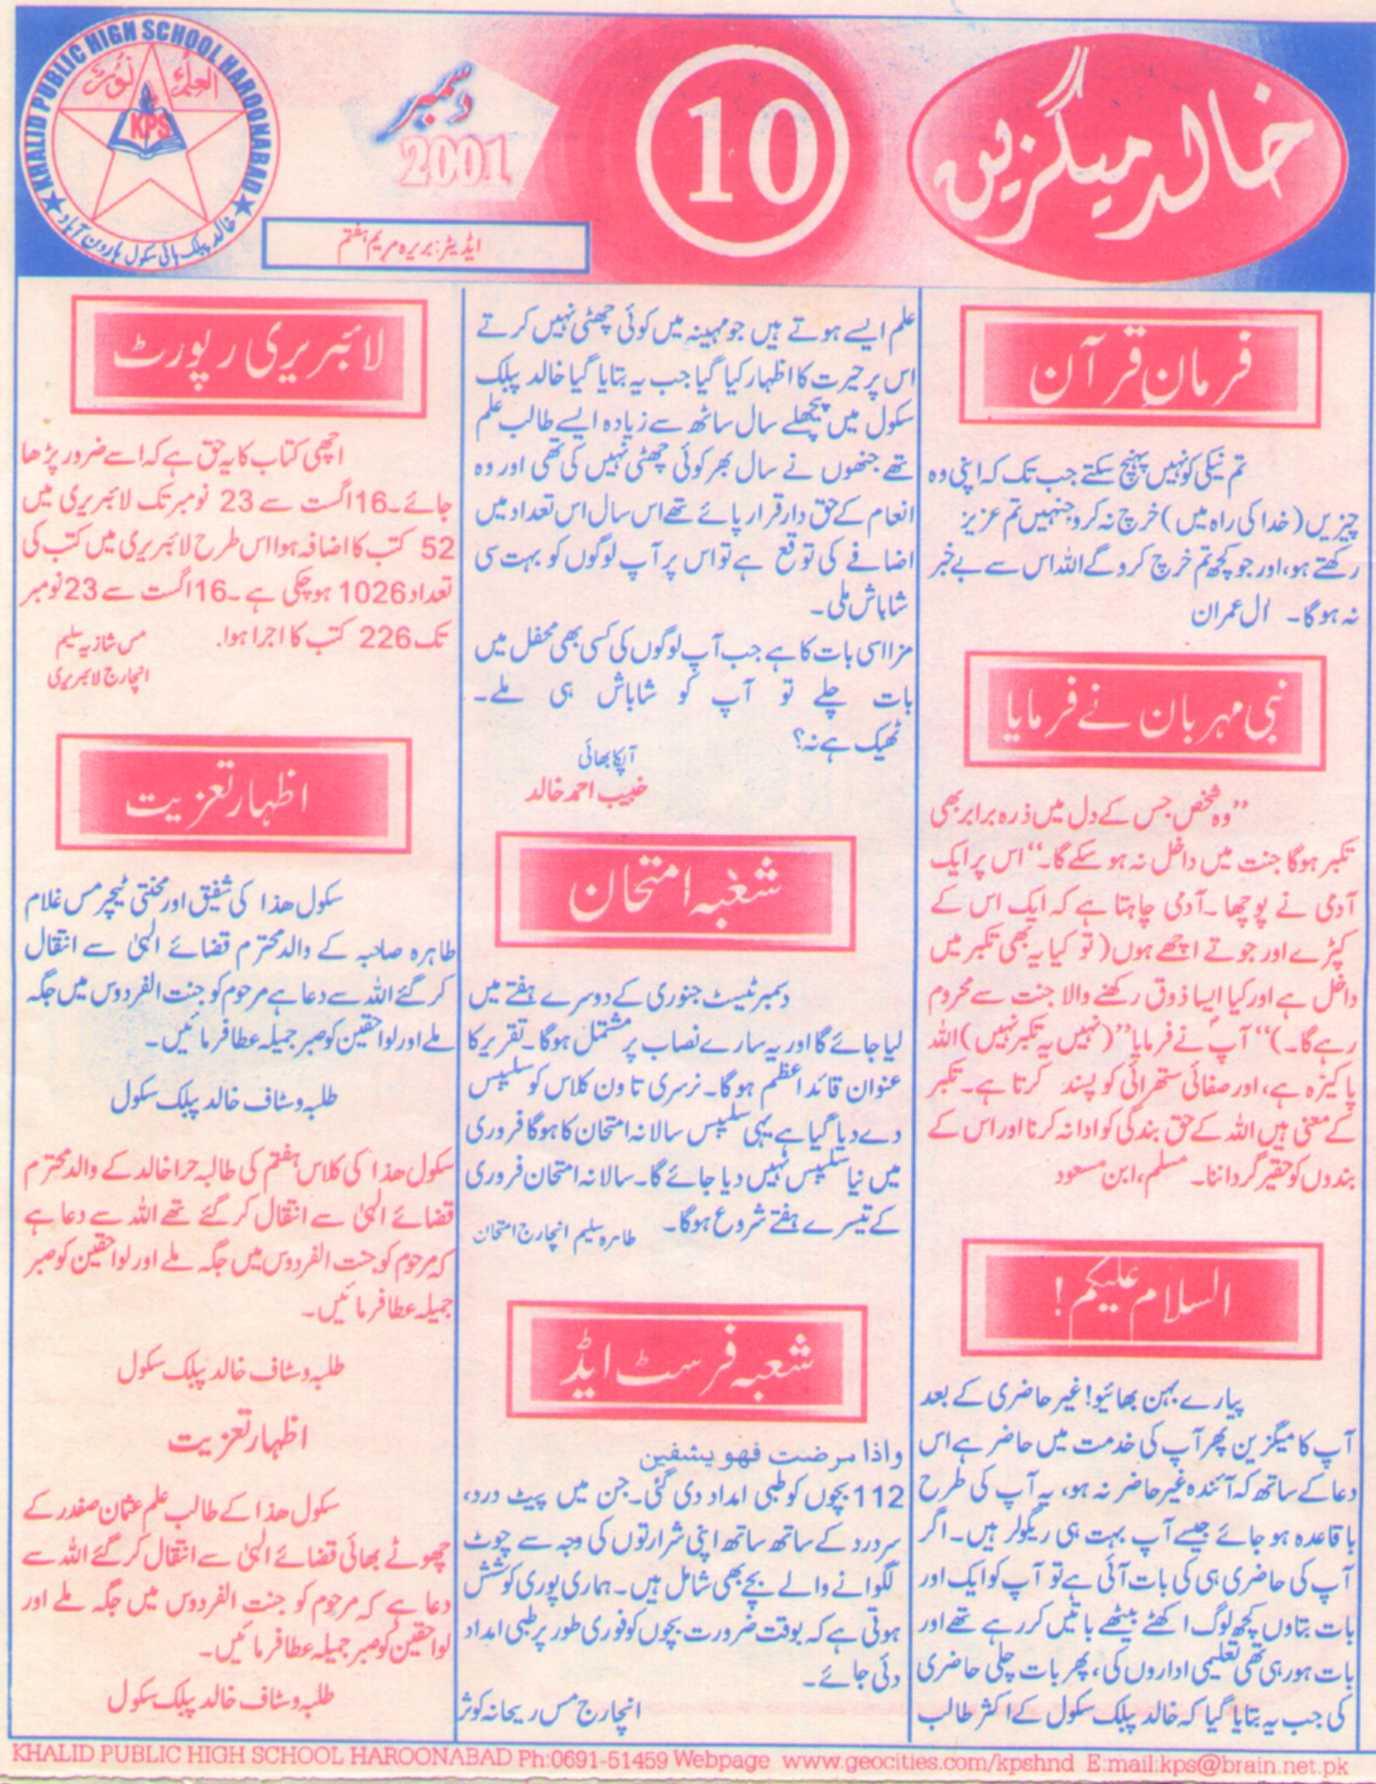 خالد میگزین
10
دسمبر
2001
ایڈیٹر: بریرہ مریم ہفتم
KHALID PUBLIC HIGH SCHOOL HAROONABAD
العلم نور
KPS
خالد پبلک ہائی سکول ہارون آباد
فرمانِ قرآن
تم نیکی کو نہیں پہنچ سکتے جب تک کہ اپنی وہ
چیزیں (خدا کی راہ میں) خرچ نہ کرو جنہیں تم عزیز
رکھتے ہو، اور جو کچھ تم خرچ کرو گے اللہ اس سے بے خبر
نہ ہوگا۔ ال عمران
نبی مہربان نے فرمایا
”وہ شخص جس کے دل میں ذرہ برابر بھی
تکبر ہوگا جنت میں داخل نہ ہو سکے گا۔“ اس پر ایک
آدمی نے پوچھا۔ آدمی چاہتا ہے کہ ایک اس کے
کپڑے اور جوتے اچھے ہوں (تو کیا یہ بھی تکبر میں
داخل ہے اور کیا ایسا ذوق رکھنے والا جنت سے محروم
رہے گا۔)“ آپ نے فرمایا ”(نہیں یہ تکبر نہیں) اللہ
پاکیزہ ہے، اور صفائی ستھرائی کو پسند کرتا ہے۔ تکبر
کے معنی ہیں اللہ کے حق بندگی کو ادا نہ کرنا اور اس کے
بندوں کو حقیر گرداننا۔ مسلم، ابن مسعود
السلام علیکم!
پیارے بہن بھائیو! غیر حاضری کے بعد
آپ کا میگزین پھر آپ کی خدمت میں حاضر ہے اس
دعا کے ساتھ کہ آئندہ غیر حاضر نہ ہو، یہ آپ کی طرح
باقاعدہ ہو جائے جیسے آپ بہت ہی ریگولر ہیں۔ اگر
آپ کی حاضری ہی کی بات آئی ہے تو آپ کو ایک اور
بات بتاوں کچھ لوگ اکھٹے بیٹھے باتیں کر رہے تھے اور
بات ہو رہی تھی تعلیمی اداروں کی، پھر بات چلی حاضری
کی جب یہ بتایا گیا کہ خالد پبلک سکول کے اکثر طالب
علم ایسے ہوتے ہیں جو مہینہ میں کوئی چھٹی نہیں کرتے
اس پر حیرت کا اظہار کیا گیا جب یہ بتایا گیا خالد پبلک
سکول میں پچھلے سال ساٹھ سے زیادہ ایسے طالب علم
تھے جنھوں نے سال بھر کوئی چھٹی نہیں کی تھی اور وہ
انعام کے حق دار قرار پائے تھے اس سال اس تعداد میں
اضافے کی توقع ہے تو اس پر آپ لوگوں کو بہت سی
شاباش ملی۔
مزا اسی بات کا ہے جب آپ لوگوں کی کسی بھی محفل میں
بات چلے تو آپ کو شاباش ہی ملے۔
ٹھیک ہے نہ؟
آپکا بھائی
خبیب احمد خالد
شعبہ امتحان
دسمبر ٹیسٹ جنوری کے دوسرے ہفتے میں
لیا جائے گا اور یہ سارے نصاب پر مشتمل ہوگا۔ تقریر کا
عنوان قائد اعظم ہوگا۔ نرسری تا ون کلاس کو سلیبس
دے دیا گیا ہے یہی سلیبس سالانہ امتحان کا ہوگا فروری
میں نیا سلیبس نہیں دیا جائے گا۔ سالانہ امتحان فروری
کے تیسرے ہفتے شروع ہوگا۔ طاہرہ سلیم انچارج امتحان
شعبہ فرسٹ ایڈ
واذا مرضت فھو یشفین
112 بچوں کو طبی امداد دی گئی۔ جن میں پیٹ درد،
سر درد کے ساتھ ساتھ اپنی شرارتوں کی وجہ سے چوٹ
لگوانے والے بچے بھی شامل ہیں۔ ہماری پوری کوشش
ہوتی ہے کہ بوقت ضرورت بچوں کو فوری طور پر طبی امداد
دی جائے۔
انچارج مس ریحانہ کوثر
لائبریری رپورٹ
اچھی کتاب کا یہ حق ہے کہ اسے ضرور پڑھا
جائے۔ 16 اگست سے 23 نومبر تک لائبریری میں
52 کتب کا اضافہ ہوا اس طرح لائبریری میں کتب کی
تعداد 1026 ہو چکی ہے۔ 16 اگست سے 23 نومبر
تک 226 کتب کا اجرا ہوا۔
مس شازیہ سلیم
انچارج لائبریری
اظہار تعزیت
سکول ھذا کی شفیق اور محنتی ٹیچر مس غلام
طاہرہ صاحبہ کے والد محترم قضائے الہیٰ سے انتقال
کر گئے اللہ سے دعا ہے مرحوم کو جنت الفردوس میں جگہ
ملے اور لواحقین کو صبر جمیلہ عطا فرمائیں۔
طلبہ و سٹاف خالد پبلک سکول
سکول ھذا کی کلاس ہفتم کی طالبہ حرا خالد کے والد محترم
قضائے الہیٰ سے انتقال کر گئے تھے اللہ سے دعا ہے
کہ مرحوم کو جنت الفردوس میں جگہ ملے اور لواحقین کو صبر
جمیلہ عطا فرمائیں۔
طلبہ و سٹاف خالد پبلک سکول
اظہار تعزیت
سکول ھذا کے طالب علم عثمان صفدر کے
چھوٹے بھائی قضائے الہیٰ سے انتقال کر گئے اللہ سے
دعا ہے کہ مرحوم کو جنت الفردوس میں جگہ ملے اور
لواحقین کو صبر جمیلہ عطا فرمائیں۔
طلبہ و سٹاف خالد پبلک سکول
KHALID PUBLIC HIGH SCHOOL HAROONABAD Ph:0691-51459 Webpage www.geocities.com/kpshnd E:mail:kps@brain.net.pk